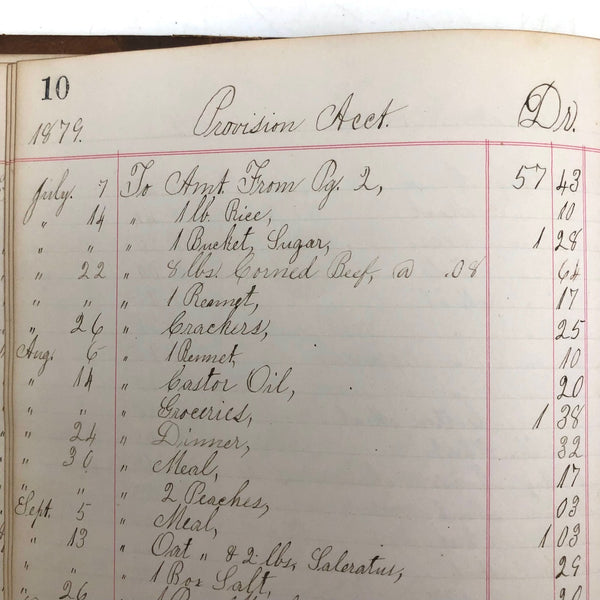 10
1879. Provision Acct. Dr.
July. 7 To Amt From Pg. 2, 57 43
" 14 " 1 lb. Rice, 10
" " " 1 Bucket, Sugar, 1 28
" 22 " 8 lbs. Corned Beef, @ .08 64
" " " 1 Rennet, 17
" 26 " Crackers, 25
Aug. 6 " 1 Rennet, 10
" 14 " Castor Oil, 20
" " " Groceries, 1 38
" 24 " Dinner, 32
" 30 " Meal, 17
" " " 2 Peaches, 03
Sept. 5 " Meal, 1 03
" 13 " Oat " & 2 lbs. Saleratus, 29
" " " 1 Box Salt, 20
" 26